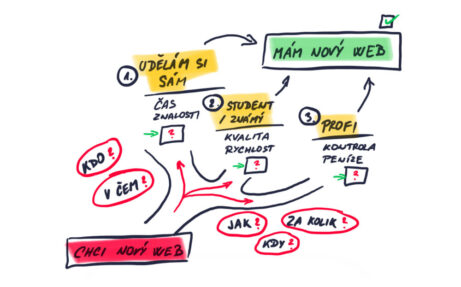 MÁM NOVÝ WEB
1.
UDĚLÁM SI
SÁM
ČAS
ZNALOSTI
?
2.
STUDENT
/ ZNÁMÝ
KVALITA
RYCHLOST
?
3.
PROFI
KONTROLA
PENÍZE
?
KDO?
V ČEM?
JAK?
ZA KOLIK?
KDY?
CHCI NOVÝ WEB